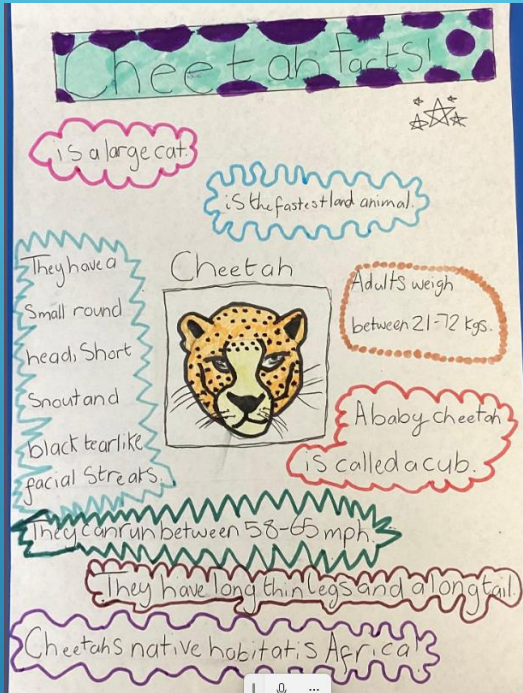 Cheetah facts!
is a large cat.
is the fastest land animal.
They have a
small round
head, short
snout and
black tearlike
facial streaks.
Cheetah
Adults weigh
between 21-72 kgs.
A baby cheetah
is called a cub.
They can run between 58-65 mph.
They have long thin legs and a long tail.
Cheetahs native habitat is Africa!